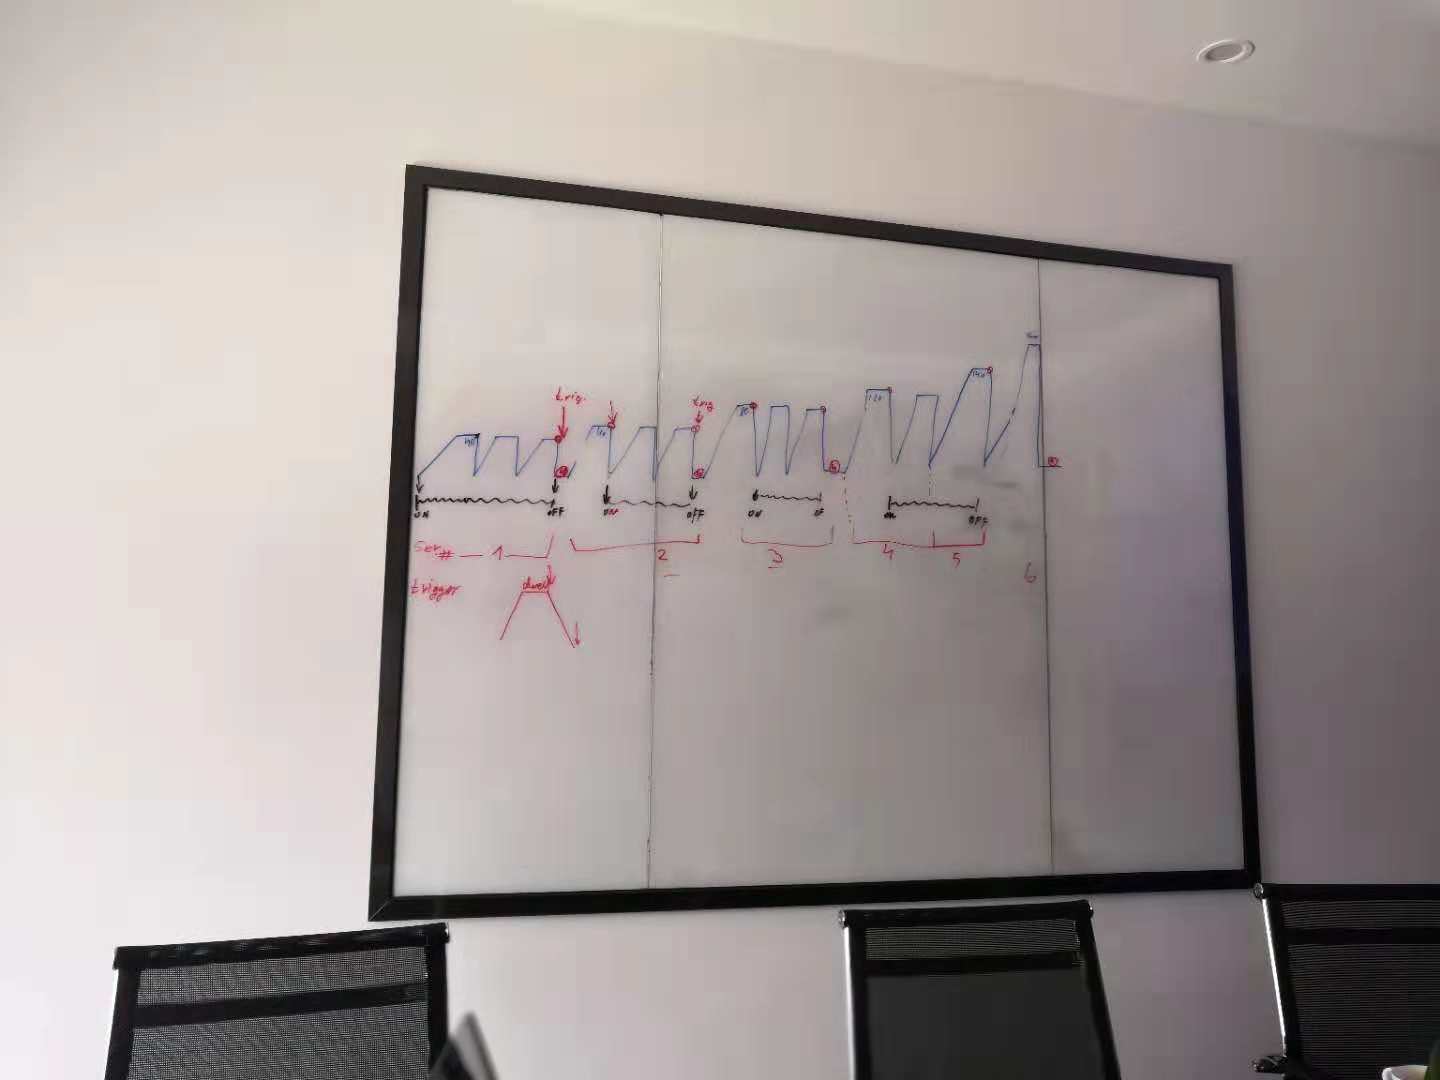 trig.
trig
80
120
140
ON OFF ON OFF ON OF ON OFF
Ser # 1 2 3 4 5 6
trigger
dwell